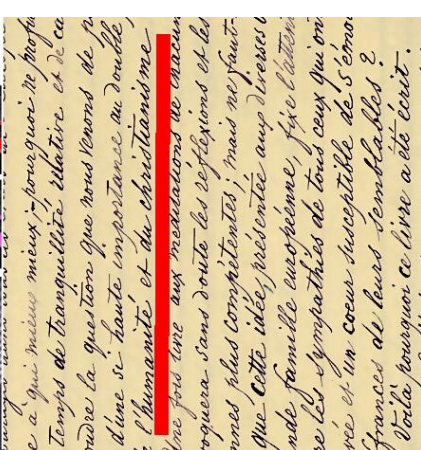 e a qui mieux mieux,- pourquoi ne profi
temps de tranquillité relative et de ca
oudre la question que nous venons de p
d'une si haute importance au double
l'humanité et du christianisme
Une fois livré aux méditations de chacun
oquera sans doute les réflexions et les
nnes plus compétentes; mais ne faut-
que cette idée, présentée aux diverses b
nde famille européenne, fixe l'attent
re les sympathies de tous ceux qui on
rée et un coeur susceptible de s'émou
frances de leurs semblables?
Voilà pourquoi ce livre a été écrit.